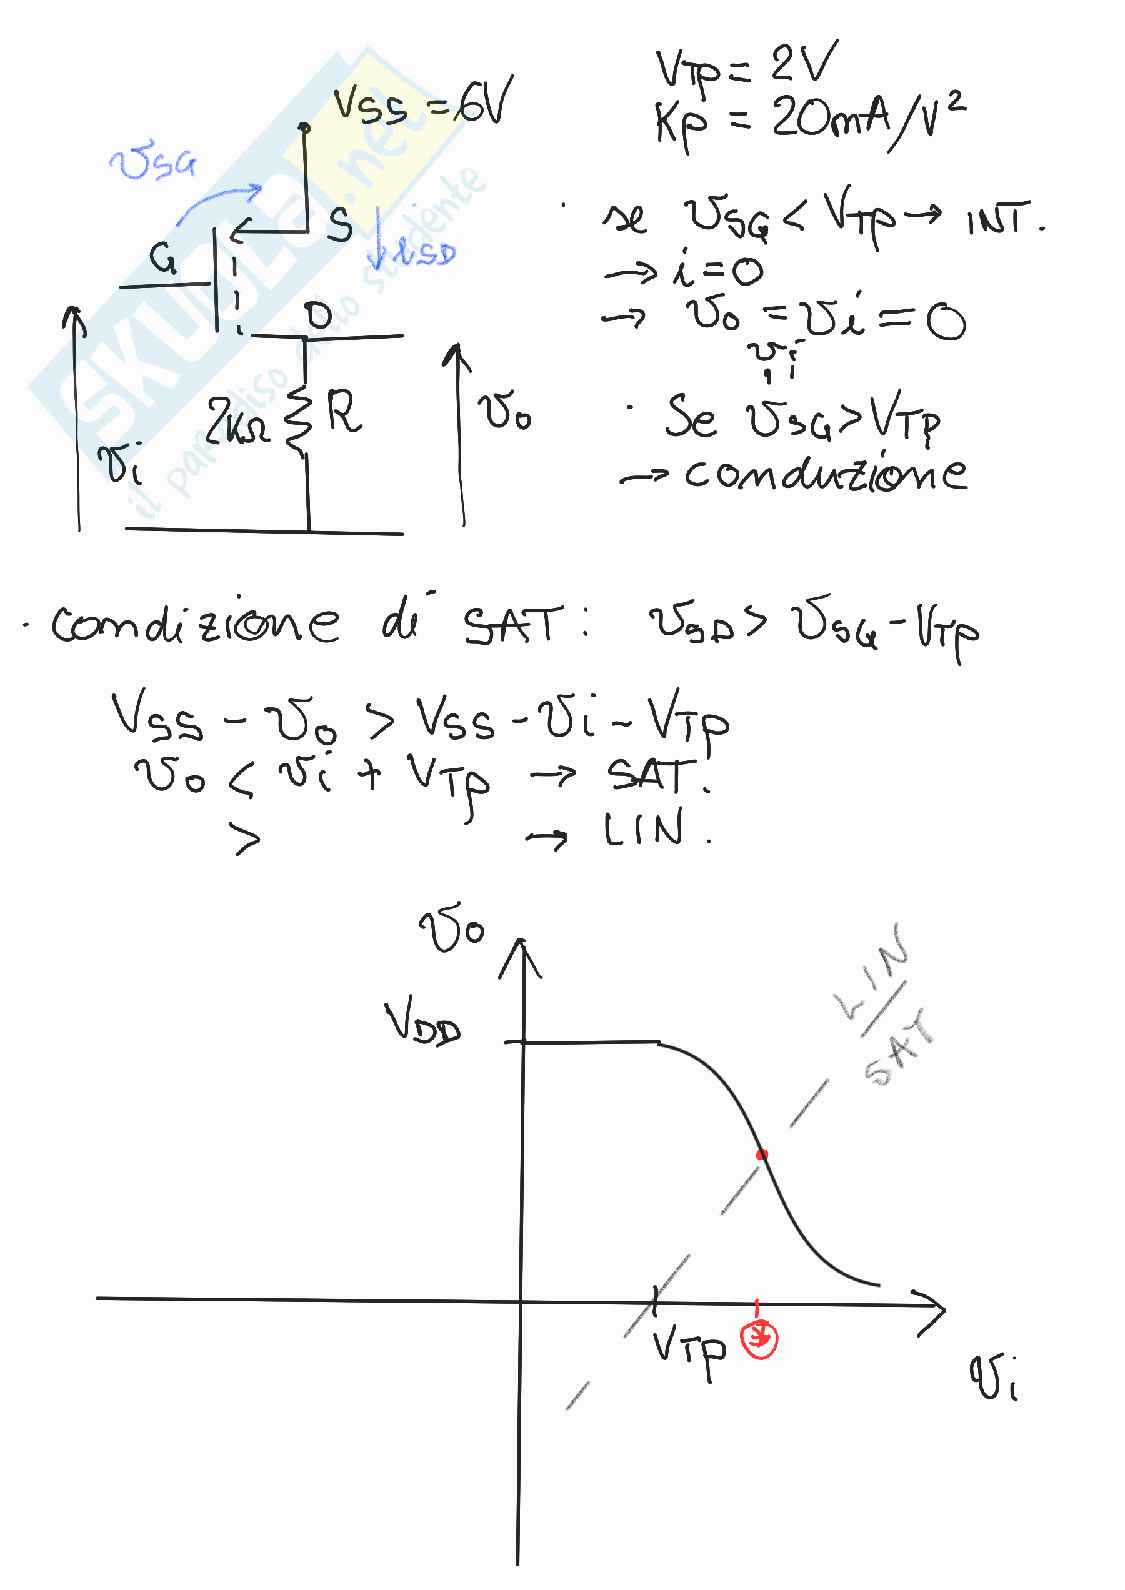 VSS = 6V
VTP = 2V
KP = 20mA/V²
vSG
S
iSD
G
D
2KΩ
R
vi
vo
· se vSG < VTP → INT.
→ i = 0
→ vo = vi = 0
vi
· Se vSG > VTP
→ conduzione
· condizione di SAT: vSD > vSG - VTP
VSS - vo > VSS - vi - VTP
vo < vi + VTP → SAT.
> → LIN.
vo
VDD
LIN
SAT
VTP
vi
SKUOLA.net
il paradiso dello studente